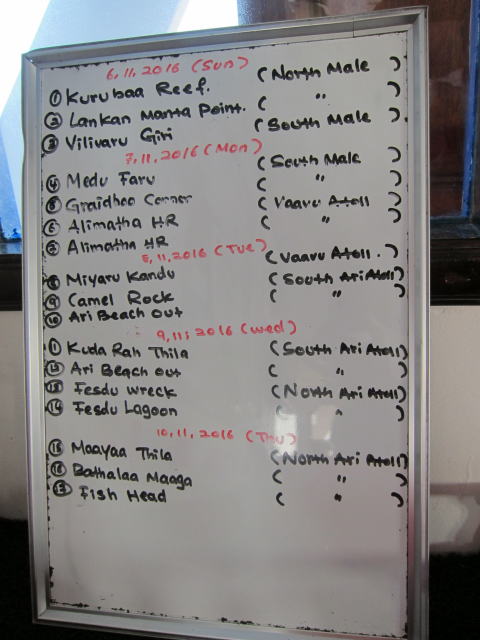 6,11,2016 (Sun)
① Kurubaa Reef. (North Male)
② Lankan Manta Point. ( " )
③ Vilivaru Giri (South Male)
7,11,2016 (Mon)
④ Medu Faru (South Male)
⑤ Graidhoo Corner ( " )
⑥ Alimatha HR (Vaavu Atoll)
⑦ Alimatha HR ( " )
8,11,2016 (Tue)
⑧ Miyaru Kandu (Vaavu Atoll.)
⑨ Camel Rock (South Ari Atoll)
⑩ Ari Beach out ( " )
9,11,2016 (Wed)
⑪ Kuda Rah Thila (South Ari Atoll)
⑫ Ari Beach out ( " )
⑬ Fesdu Wreck (North Ari Atoll)
⑭ Fesdu Lagoon ( " )
10,11,2016 (Thu)
⑮ Maayaa Thila (North Ari Atoll)
⑯ Bathalaa Maaga ( " )
⑰ Fish Head ( " )